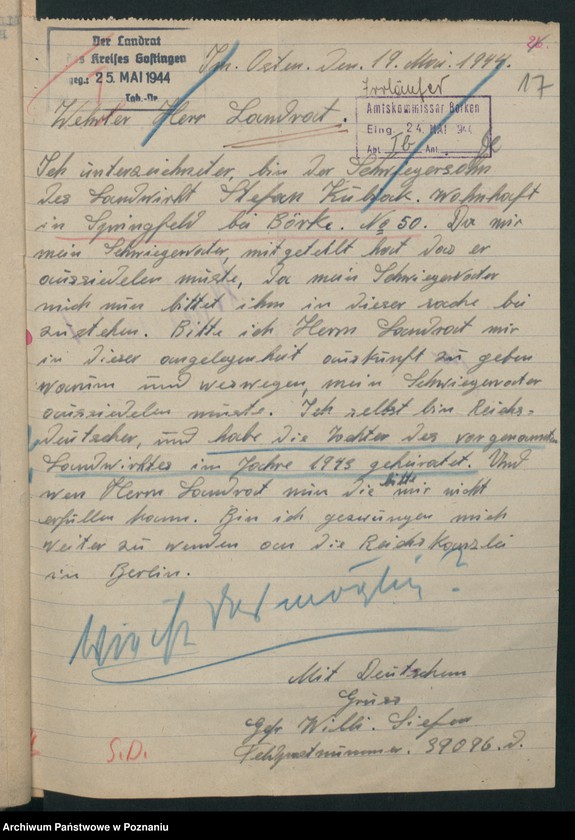 Der Landrat
des Kreises Gostingen
geg.: 25. MAI 1944
Tgb.-Nr.
26.
17
Im. Osten. Den. 19. Mai. 1944.
Irrläufer
Amtskommissar Borken
Eing. 24. MAI 1944
Abt. Ib Anl.
Wehrter Herr Landrat.
Ich unterzeichneter, bin der Schwiegersohn
des Landwirkt Stefan Kubiak. wohnhaft
in Springfeld bei Börke. No 50. Da mir
mein Schwiegervater, mitgeteilt hat das er
aussiedelen müste, Da mein Schwiegervater
mich nun bittet ihm in dieser sache bei
zu stehen. Bitte ich Herrn Landrat mir
in dieser angelegenheit auskunft zu geben
warum und weswegen, mein Schwiegervater
aussiedelen müste. Ich selbst bin Reichs-
deutscher, und habe die Tochter des vorgenannten
Landwirktes im Jahre 1943 geheiratet. Und
wen Herrn Landrat nun die bitte mir nicht
erfüllen kann. Bin ich gezwungen mich
weiter zu wenden an die Reichskanzlei
in Berlin.
Wie ist das möglich?
Mit Deutschem
Gruss
Gefr. Willi. Siefen
Feldpostnummer. 39096. d.
S.D.
Archiwum Państwowe w Poznaniu